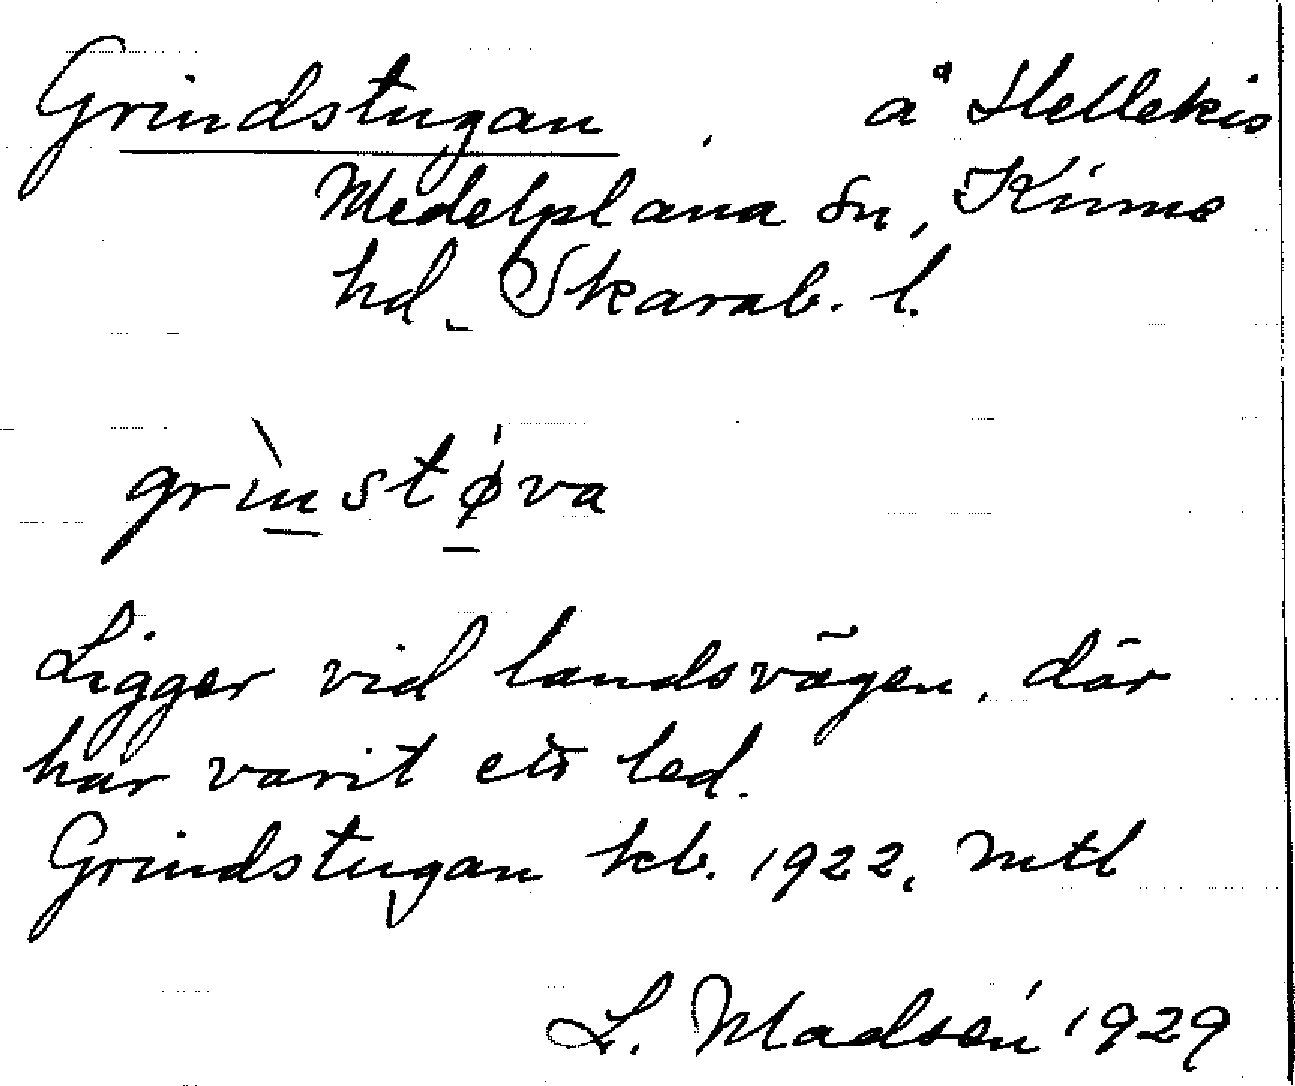 Grindstugan. å Hellekis
Medelplana sn, Kinne
hd. Skarab. l.
grìnstǿva
Ligger vid landsvägen, där
har varit ett led.
Grindstugan kb. 1922, mtl
L. Madsén 1929